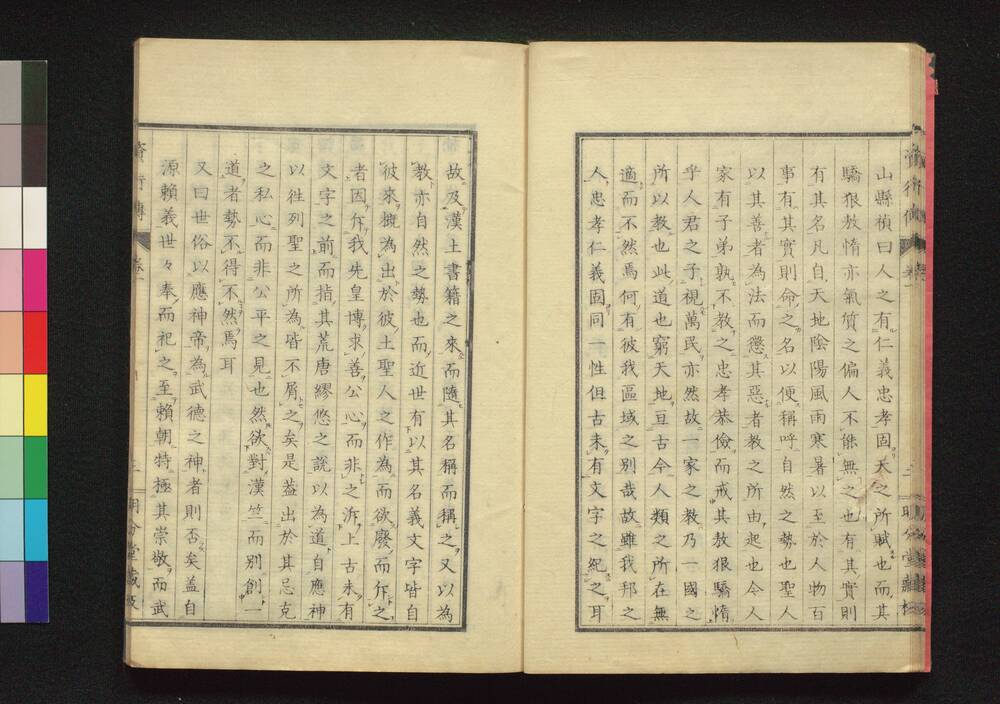 山縣禎曰人之有仁義忠孝固天之所賦也而其
驕狠敖惰亦氣質之偏人不能無之也有其實則
有其名凡自天地陰陽風雨寒暑以至於人物百
事有其實則命之名以便稱呼自然之勢也聖人
以其善者為法而懲其惡者教之所由起也今人
家有子弟孰不教之忠孝恭儉而戒其敖狠驕惰
乎人君之子視萬民亦然故一家之教乃一國之
所以教也此道也窮天地亘古今人類之所在無
適而不然焉何有彼我區域之別哉故雖我邦之
人忠孝仁義固同一性但古未有文字之紀之耳
故及漢土書籍之來而隨其名稱而稱之又以為
教亦自然之勢也而近世有以其名義文字皆自
彼來概為出於彼土聖人之作為而欲廢而斥之
者因斥我先皇博求善公心而非之泝上古未有
文字之前而指其荒唐繆悠之說以為道自應神
以往列聖之所為皆不屑之矣是蓋出於其忌克
之私心而非公平之見也然欲對漢竺而別創一
道者勢不得不然焉耳
又曰世俗以應神帝為武德之神者則否矣蓋自
源賴義世々奉而祀之至賴朝特極其崇敬而武
卷一
明倫堂藏版